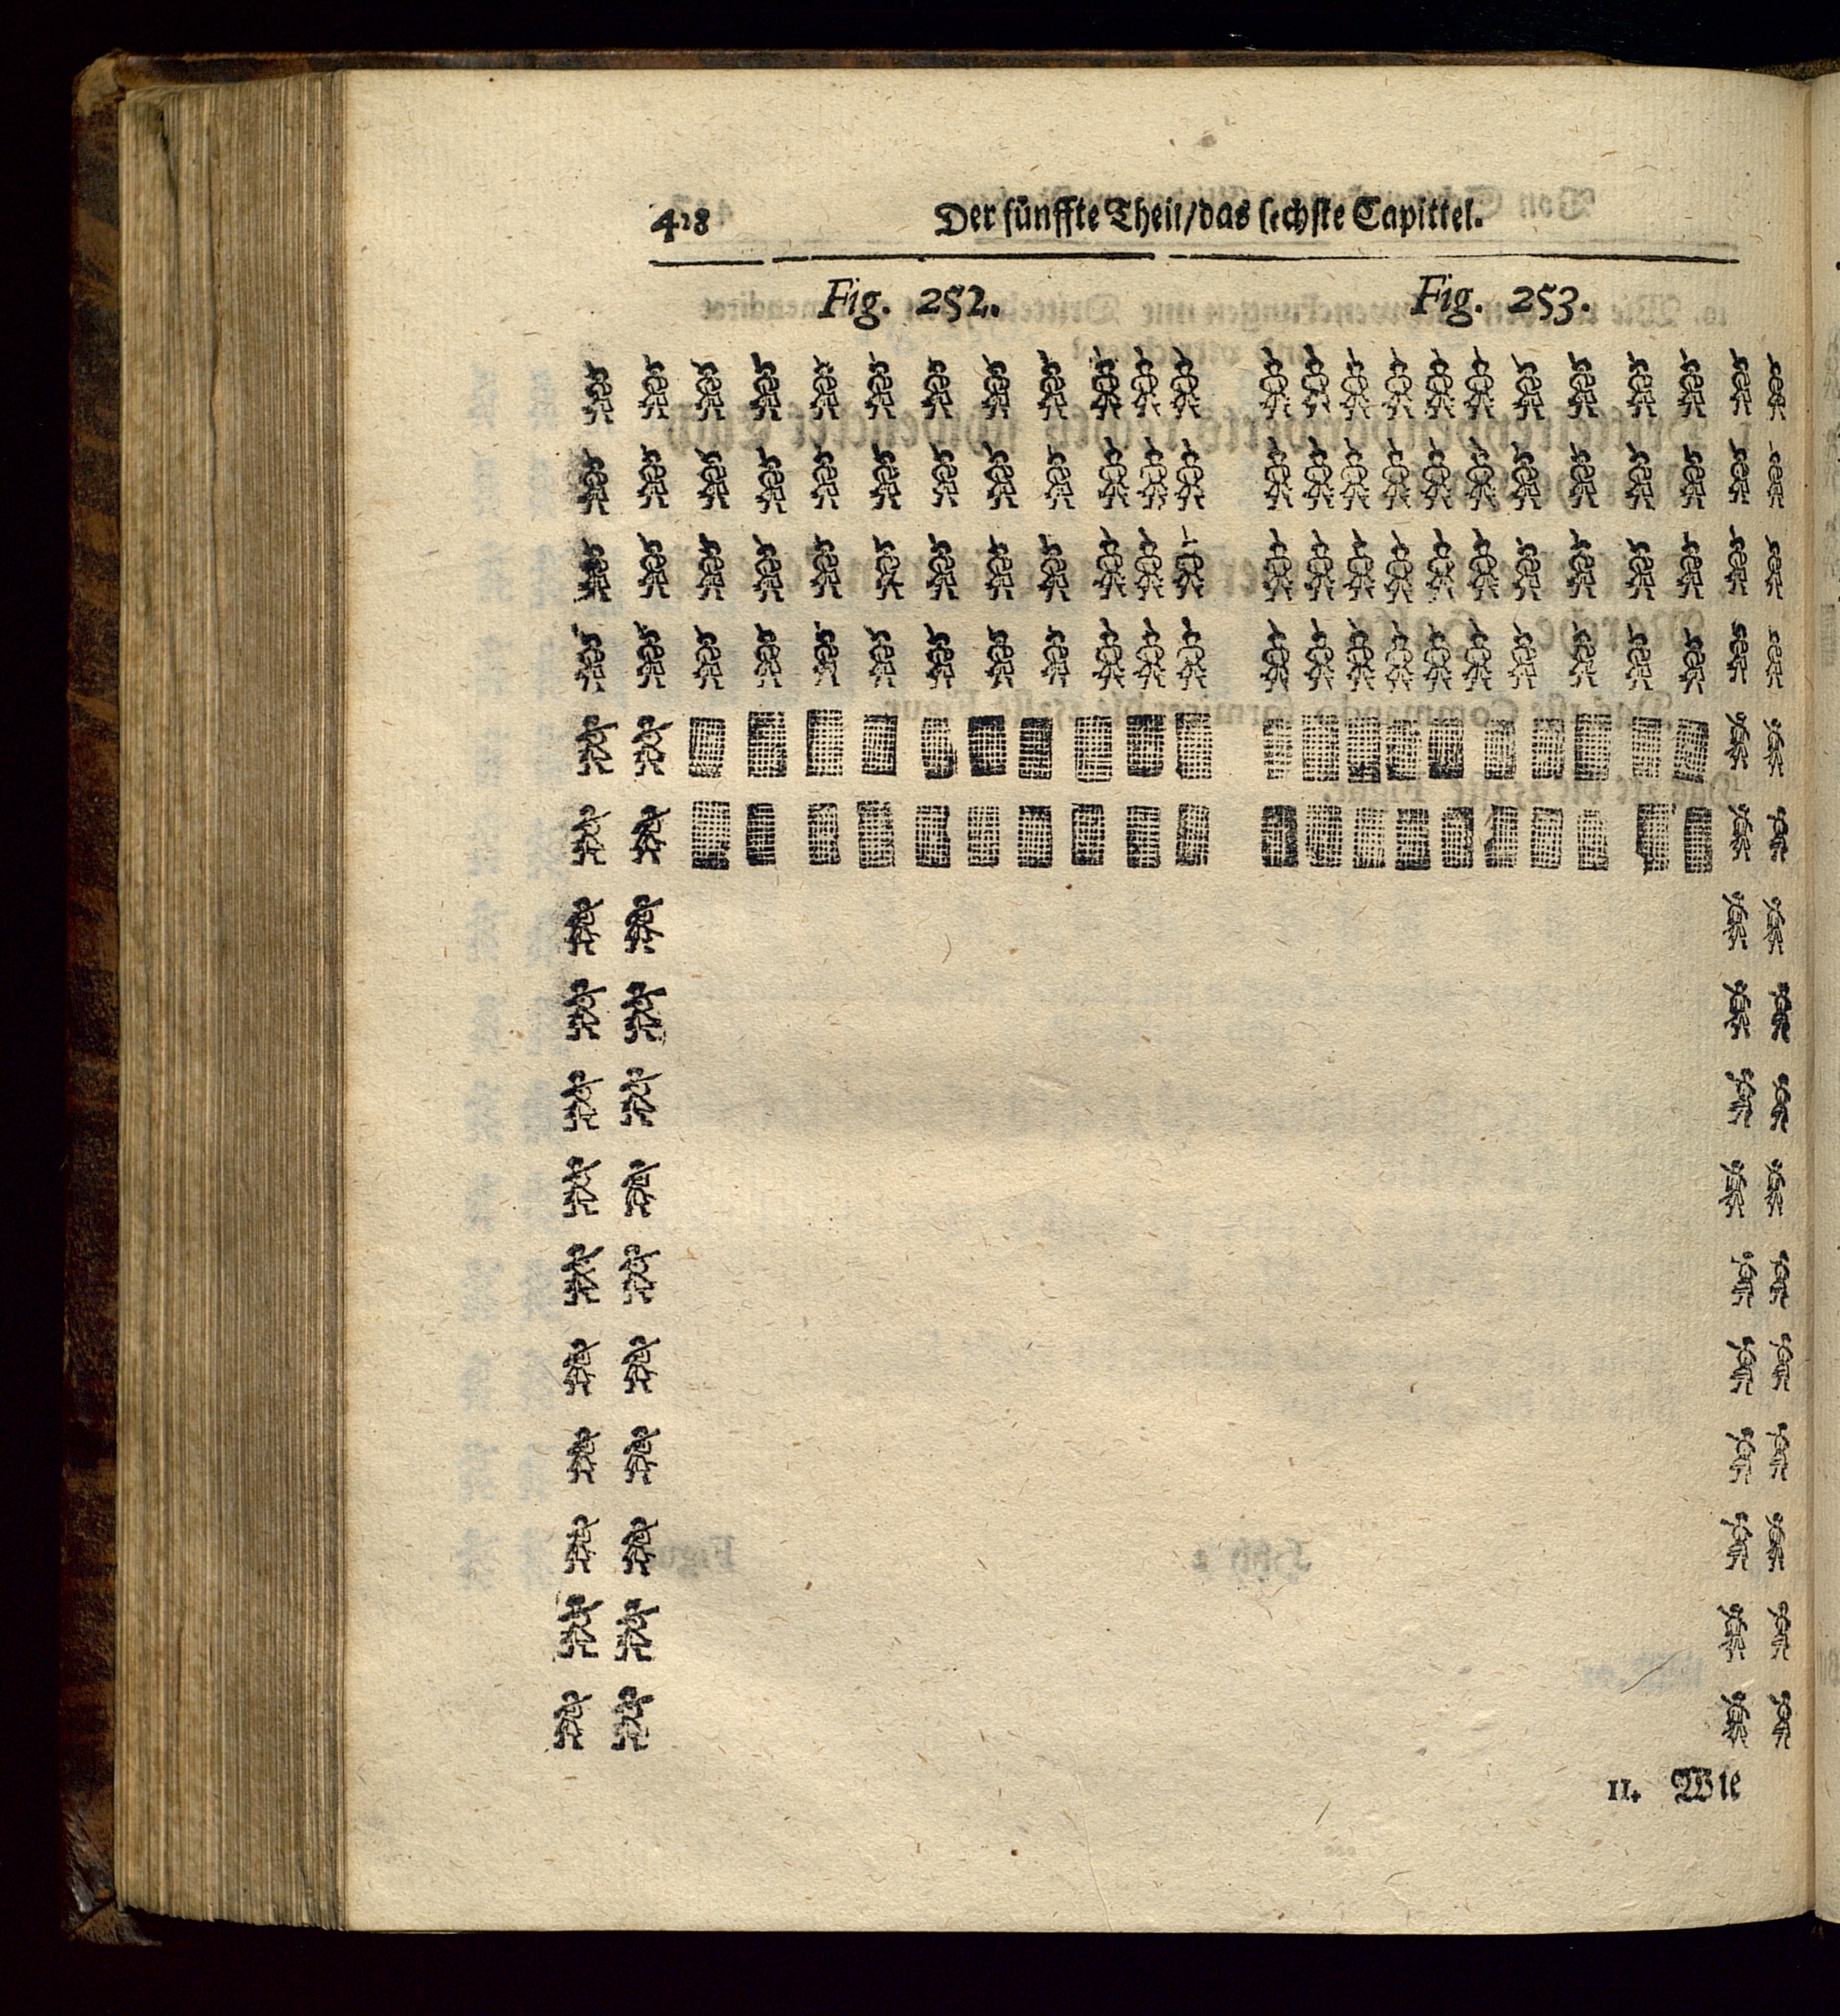 428 Der fünffte Theil/das sechste Capittel.
Fig. 252. Fig. 253.
11. Wie